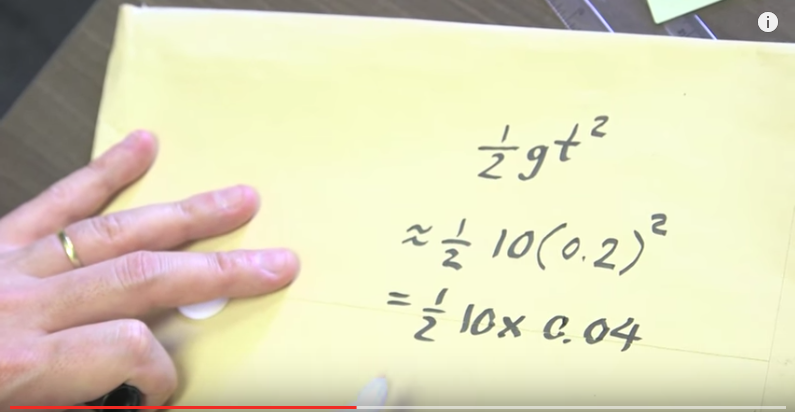 ½gt²
≈ ½ 10(0.2)²
= ½ 10x 0.04